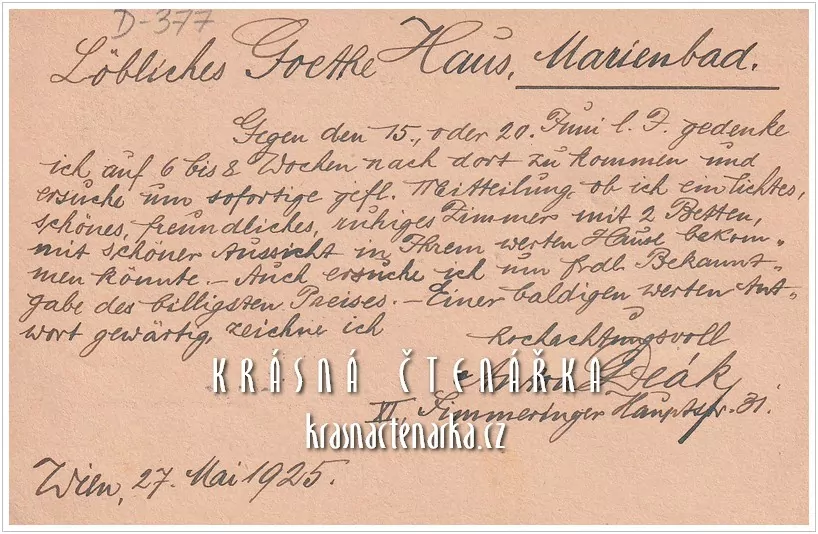 D-377
Löbliches Goethe Haus, Marienbad.
Gegen den 15., oder 20. Juni l. J. gedenke
ich auf 6 bis 8 Wochen nach dort zu kommen und
ersuche um sofortige gefl. Mitteilung, ob ich ein lichtes,
schönes, freundliches, ruhiges Zimmer mit 2 Betten,
mit schöner Aussicht in Ihrem werten Hause bekom„
men könnte. – Auch ersuche ich um frdl. Bekannt„
gabe des billigsten Preises. – Einer baldigen werten Ant„
wort gewärtig, zeichne ich
hochachtungsvoll
KRÁSNÁ ČTENÁŘKA
Deák
XI. Simmeringer Hauptstr. 31.
krasnactenarka.cz
Wien, 27. Mai 1925.